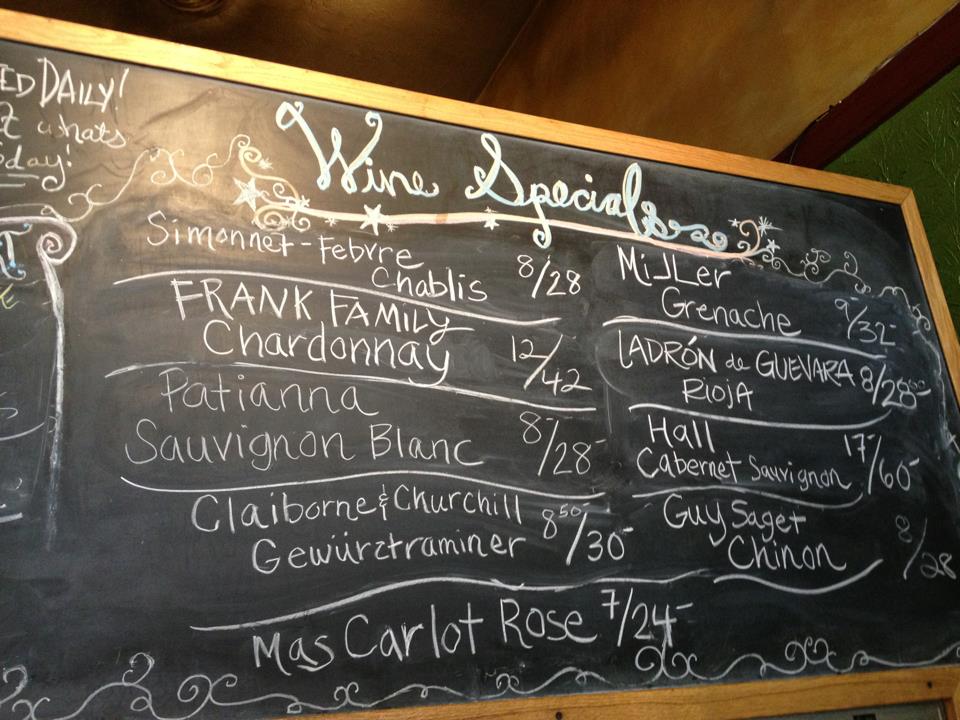 ED DAILY!
whats
day!
Wine Specials
Simonnet-Febvre
Chablis 8/28
FRANK FAMILY
Chardonnay 12/42
Patianna
Sauvignon Blanc 8/28-
Claiborne & Churchill
Gewürztraminer 8⁵⁰/30-
Miller
Grenache 9/32-
LADRÓN de GUEVARA
RIOJA 8/28⁰⁰
Hall
Cabernet Sauvignon 17/60-
Guy Saget
Chinon 8/28
Mas Carlot Rose 7/24-